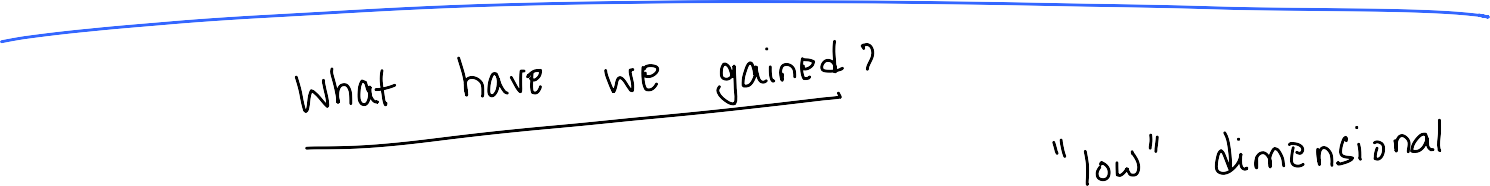 What have we gained?
"low" dimensional